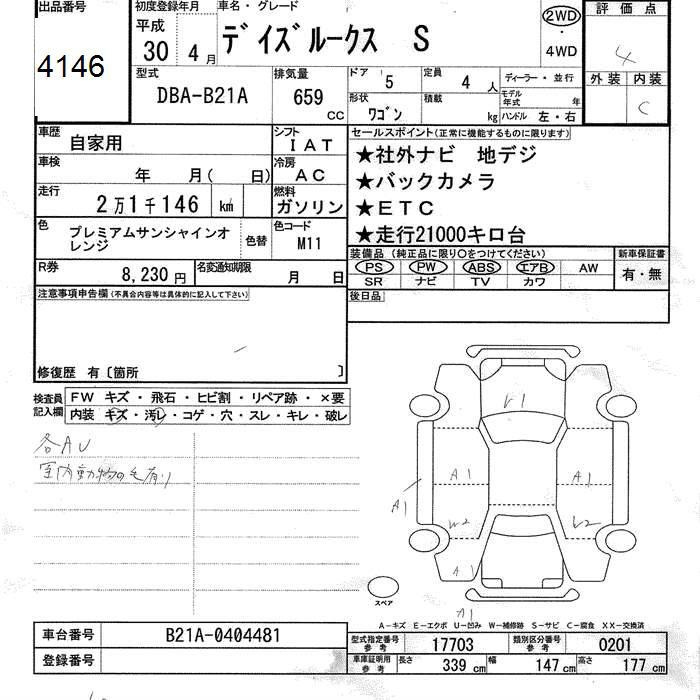 出品番号 初度登録年月 車名・グレード 評価点
4146 平成 30 4月 デイズルークス S 2WD ・ 4WD 4
型式 排気量 ドア 5 定員 4人 ディーラー・並行 外装 内装
DBA-B21A 659 cc 形状 ワゴン 積載 kg モデル年式 年 ハンドル 左・右 C
車歴 自家用 シフト IAT セールスポイント(正常に機能するものに限ります)
車検 年 月( 日) 冷房 AC ★社外ナビ 地デジ
走行 2万1千146 km 燃料 ガソリン ★バックカメラ
★ETC
色 プレミアムサンシャインオレンジ 色替 色コード M11 ★走行21000キロ台
装備品 (純正品に限り○をつけてください) 新車保証書
R券 8,230円 名変通知期限 月 日 PS PW ABS エアB AW 有・無
SR ナビ TV カワ
注意事項申告欄(不具合内容等は具体的に記入して下さい) 後日品
修復歴 有〔箇所 〕
検査員記入欄 FW キズ・飛石・ヒビ割・リペア跡・×要
内装 キズ・汚レ・コゲ・穴・スレ・キレ・破レ
各AU
室内動物の毛有り
A1 A1
A1
W2
A1
スペア
A1
A-キズ E-エクボ U-凹み W-補修跡 S-サビ C-腐食 XX-交換済
車台番号 B21A-0404481 型式指定番号 参考 17703 類別区分番号 参考 0201
登録番号 車庫証明用 参考 長さ 339cm 幅 147cm 高さ 177cm